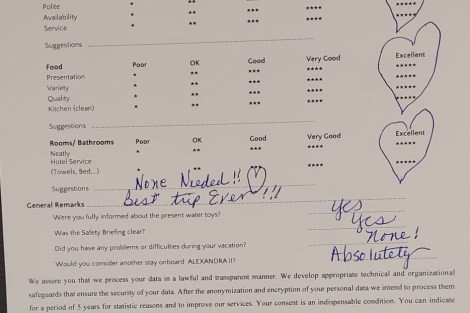 Polite * ** *** **** *****
Availability * ** *** **** *****
Service * ** *** ****
Suggestions
Food Poor OK Good Very Good Excellent
Presentation * ** *** **** *****
Variety * ** *** **** *****
Quality * ** *** **** *****
Kitchen (clean) * ** *** **** *****
Suggestions
Rooms/ Bathrooms Poor OK Good Very Good Excellent
Neatly * ** *** **** *****
Hotel Service
(Towels, Bed...) * ** *** **** *****
Suggestions None Needed!! ♡
General Remarks Best trip Ever !!!
Were you fully informed about the present water toys? yes
Was the Safety Briefing clear? yes
Did you have any problems or difficulties during your vacation? None!
Would you consider another stay onboard ALEXANDRA II? Absolutely
We assure you that we process your data in a lawful and transparent manner. We develop appropriate technical and organizational
safeguards that ensure the security of your data. After the anonymization and encryption of your personal data we intend to process them
for a period of 5 years for statistic reasons and to improve our services. Your consent is an indispensable condition. You can indicate